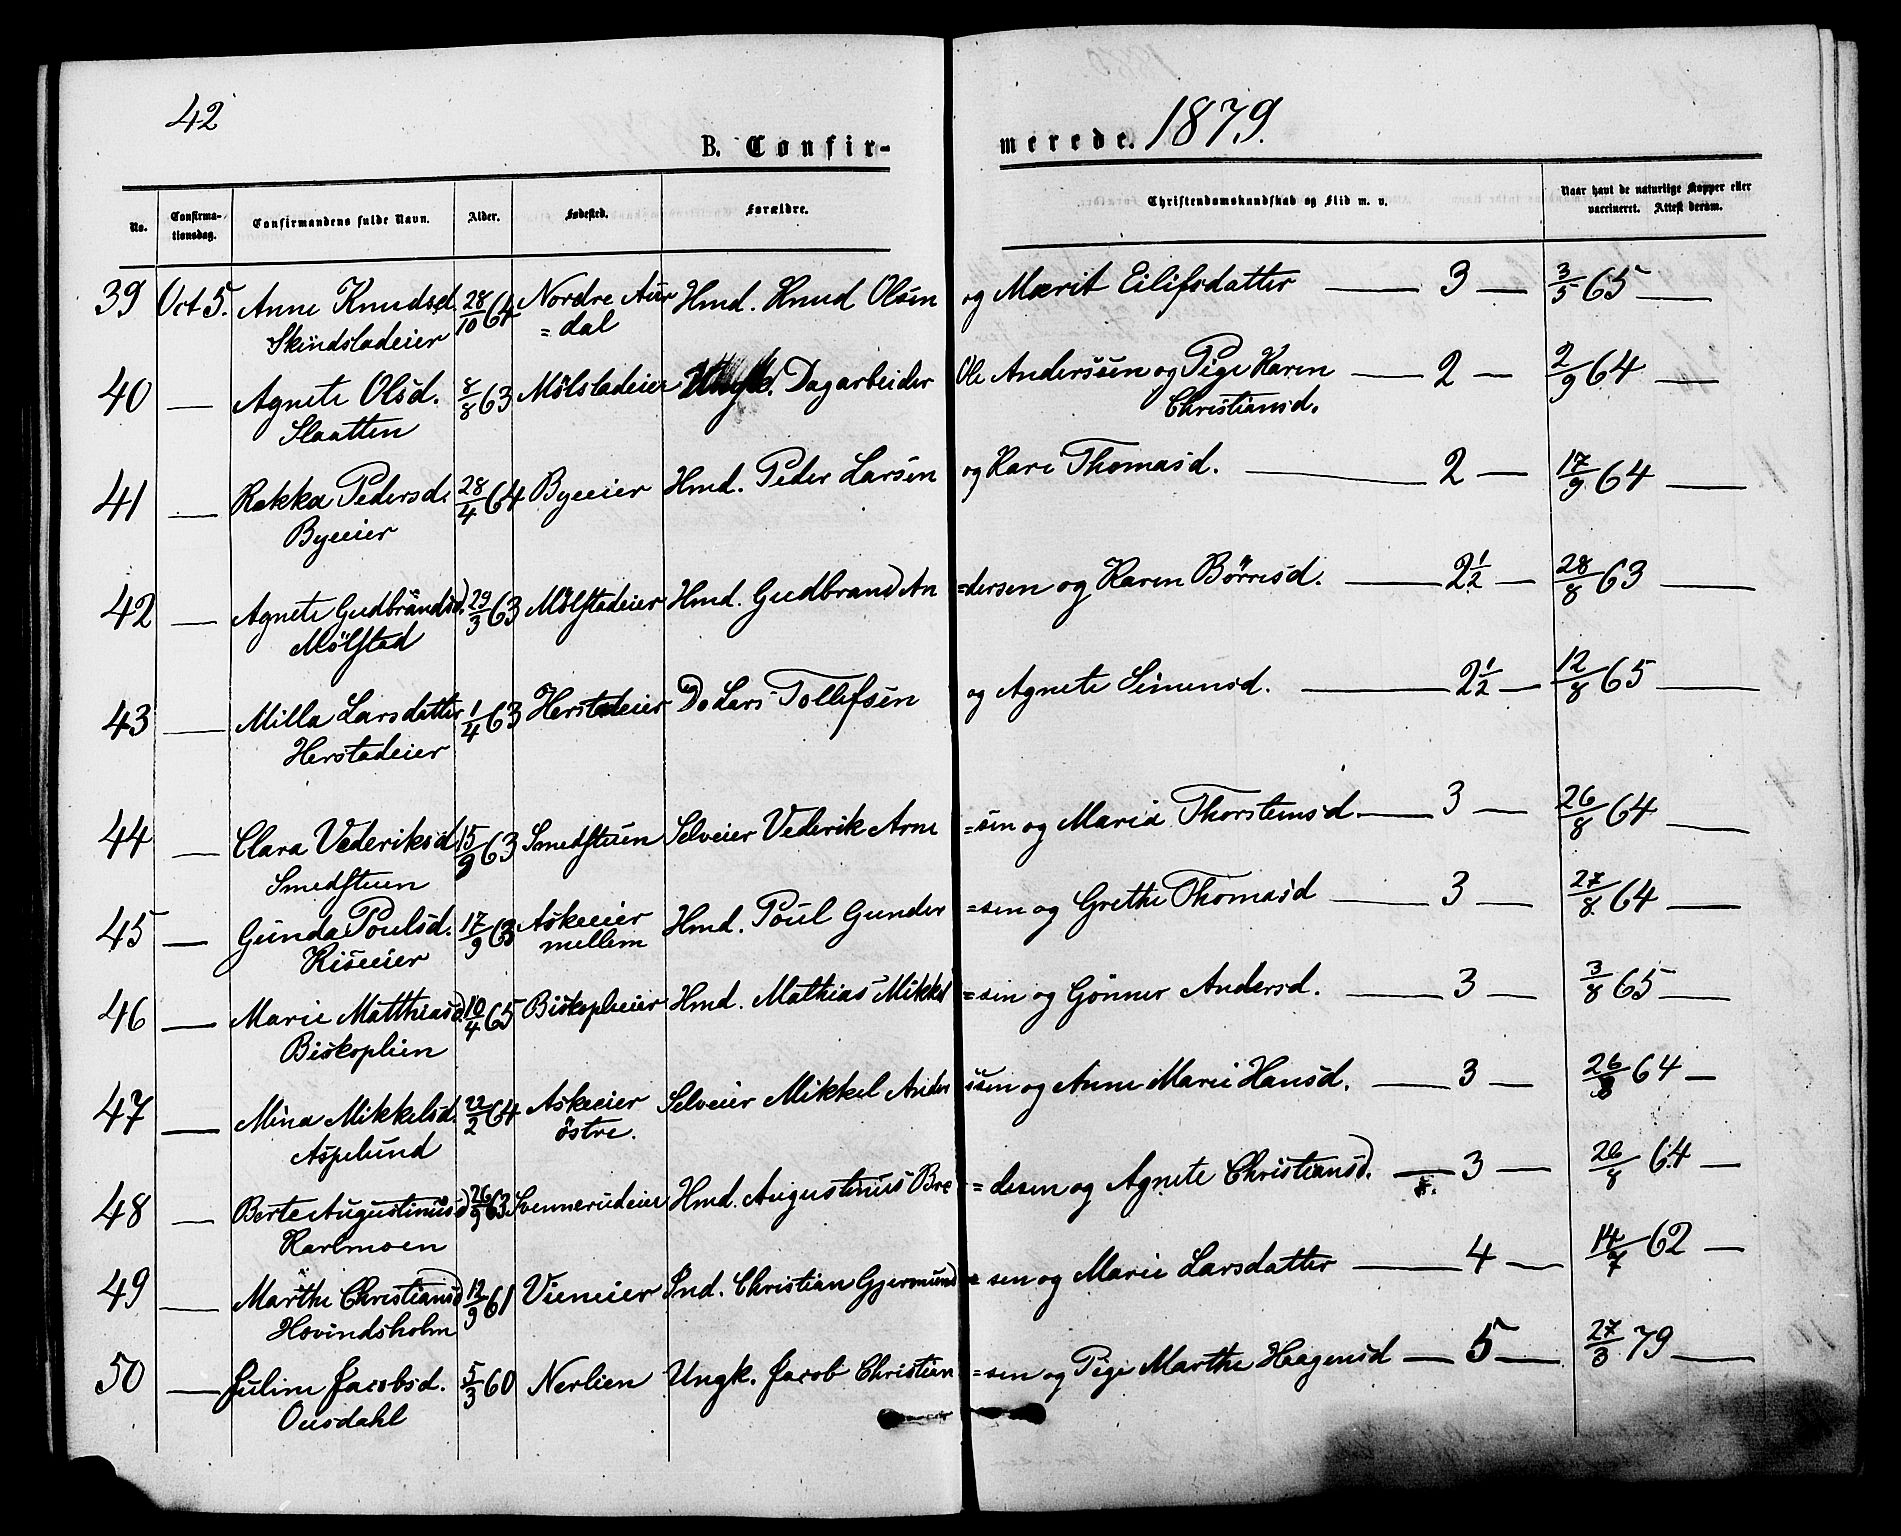 42
B. Confir- merede. 1879.
No. Confirma-tionsdag. Confirmandens fulde Navn. Alder. Fødested. Forældre. Christendomskundskab og Flid m. v. Naar havt de naturlige Kopper eller vaccineret. Attest derom.
39 Oct 5. Anne Knudsd. 28/10 64 Nordre Aur Hmd. Knud Olsen og Marit Eilifsdatter — 3 — 3/5 65 —
Skindsladeier = dal
40 — Agnete Olsd. 8/8 63 Mølstadeier Ungk. Dagarbeider Ole Anderssen og Pige Karen — 2 — 2/9 64 —
Slaatten Christiansd.
41 — Rakka Pedersd. 28/4 64 Byeeier Hmd. Peder Larsen og Kari Thomasd. — 2 — 17/9 64 —
Byeeier
42 — Agnete Gudbrandsd. 29/3 63 Mølstadeier Hmd. Gudbrand An =dersen og Karen Børresd. — 2 1/2 — 28/8 63 —
Mølstad
43 — Milla Larsdatter 1/4 63 Herstadeier Do Lars Tollefsen og Agnete Simensd. — 2 1/2 — 12/8 65 —
Herstadeier
44 — Clara Vederiksd 15/9 63 Smedstuen Selveier Vederik Arne =sen og Maria Thorstensd. — 3 — 26/8 64 —
Smedstuen
45 — Gunda Poulsd. 17/9 63 Askeeier Hmd. Poul Gunder =sen og Grethe Thomasd — 3 — 27/8 64 —
Riseeier mellem
46 — Marie Matthiasd. 10/4 65 Biskoplieier Hmd. Mathias Mikkel =sen og Gønner Andersd. — 3 — 3/8 65 —
Biskoplien
47 — Mina Mikkelsd. 22/2 64 Askeeier Selveier Mikkel Ander =ssen og Anne Marie Hansd. — 3 — 26/8 64 —
Aspelund østre.
48 — Berte Augustinusd 26/9 63 Svennerudeier Hmd. Augustinus Bre = desen og Agnete Christiansd. — 3 — 26/8 64 —
Karlmoen
49 — Marthe Christiansd 12/9 61 Vieneier Ind. Christian Gjermund = sen og Marie Larsdatter — 4 — 14/7 62 —
Hovindsholm
50 — Juline Jacobsd. 5/3 60 Nerlien Ungk. Jacob Christian =sen og Pige Marthe Haagensd — 5 — 27/3 79 —
Ousdahl